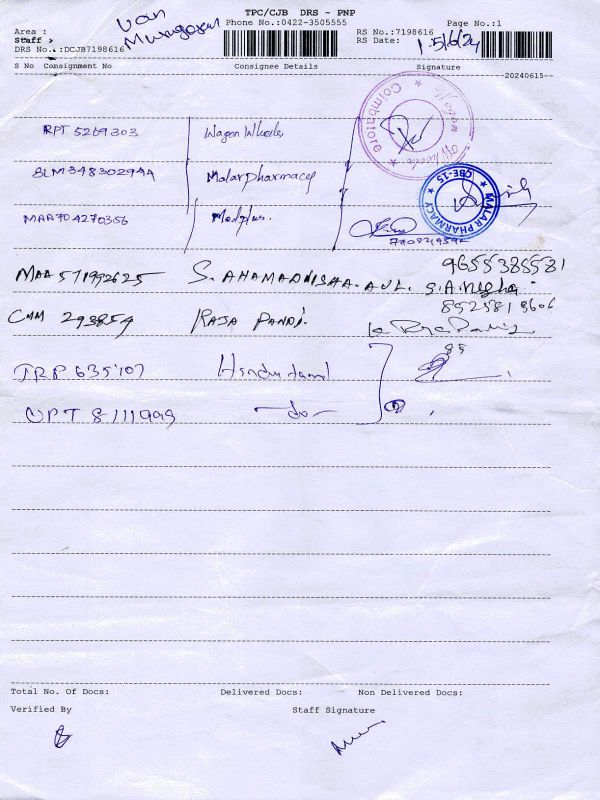 TPC/CJB DRS - PNP
Van
Murugesan
Phone No.:0422-3505555
Page No.:1
Area :
Staff :
DRS No.:DCJB7198616
RS No.:7198616
RS Date: 15/6/24
S No Consignment No Consignee Details Signature
20240615
RPT 5269303 Wagon Wheels.
Wagon Wheels Coimbatore
SLM348302944 Malar pharmacy
MALAR PHARMACY CBE-15
MAA704270356 Medplus.
MAA571992625 S. AHAMADNISHA. AUL. 9655385581
S.A.Negha
CMM 293854 RAJA PANDI. 852581 3606
TRP 635107 Hindu tamil
OPT 8111999 -do-
Total No. Of Docs: Delivered Docs: Non Delivered Docs:
Verified By Staff Signature